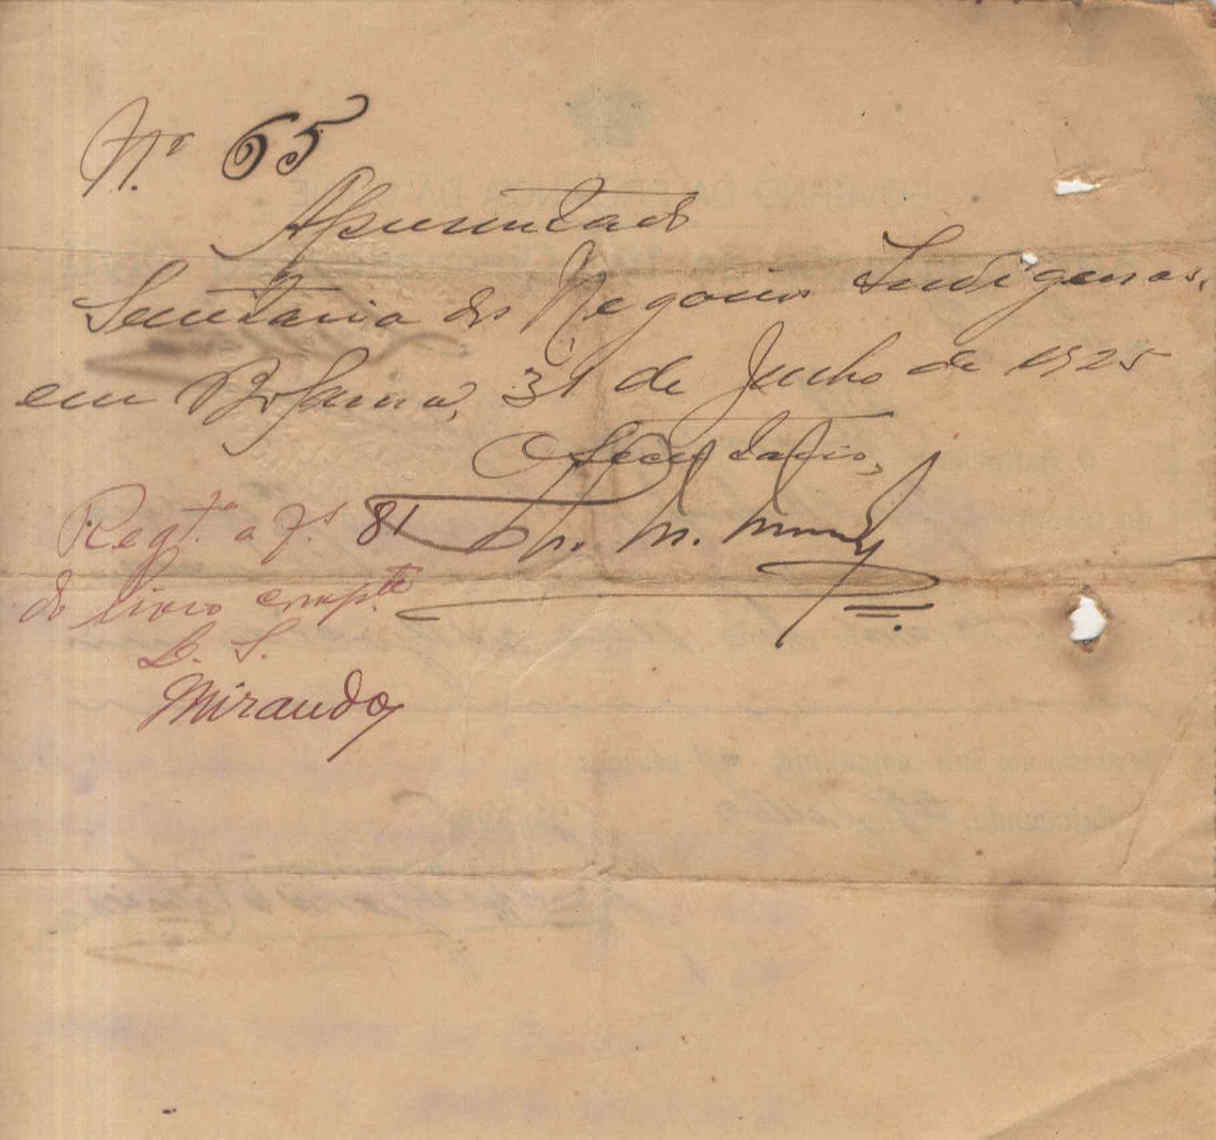 Nº 65
Apresentado
Secretaria dos Negocios Indigenas,
em Bolama, 31 de Julho de 1925
O Secretario,
Regt.º a fs. 81
do livro compte
L. S.
Miranda